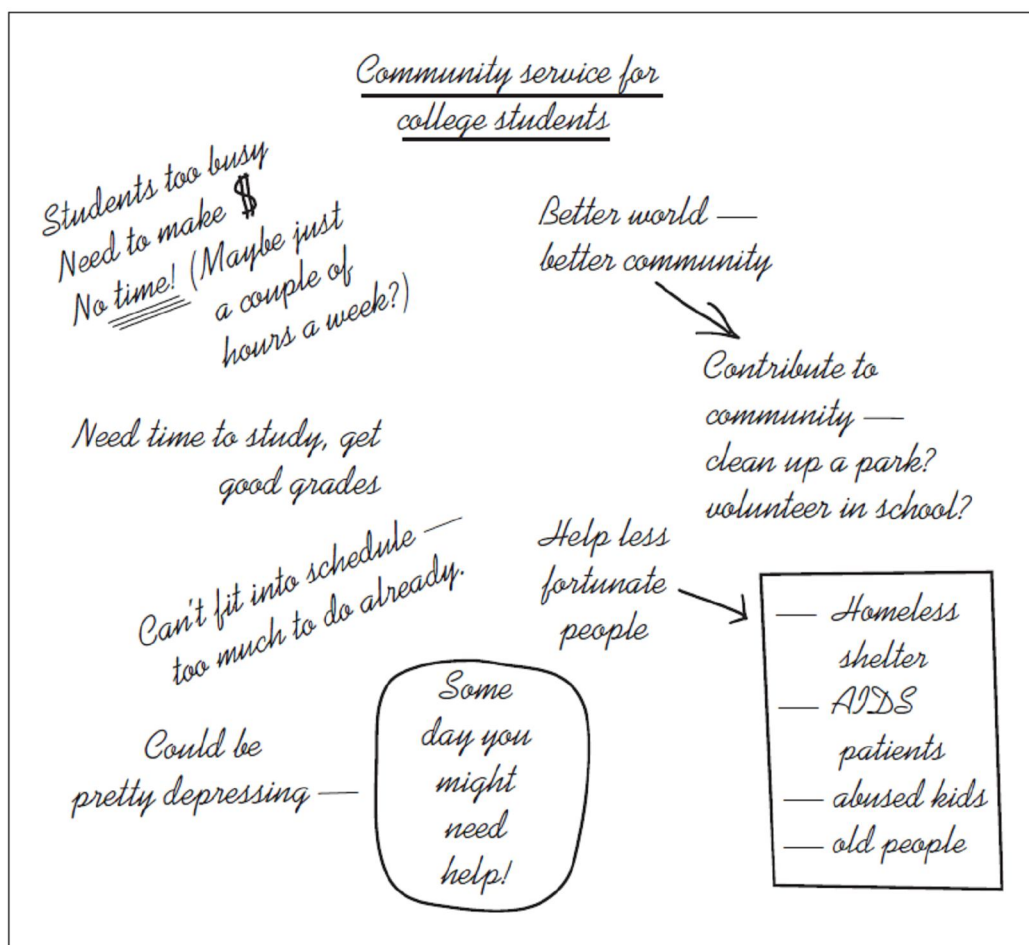 Community service for
college students
Students too busy
Need to make $
No time! (Maybe just
a couple of
hours a week?)
Need time to study, get
good grades
Can't fit into schedule —
too much to do already.
Could be
pretty depressing —
Some
day you
might
need
help!
Better world —
better community
Contribute to
community —
clean up a park?
volunteer in school?
Help less
fortunate
people
— Homeless
shelter
— AIDS
patients
— abused kids
— old people